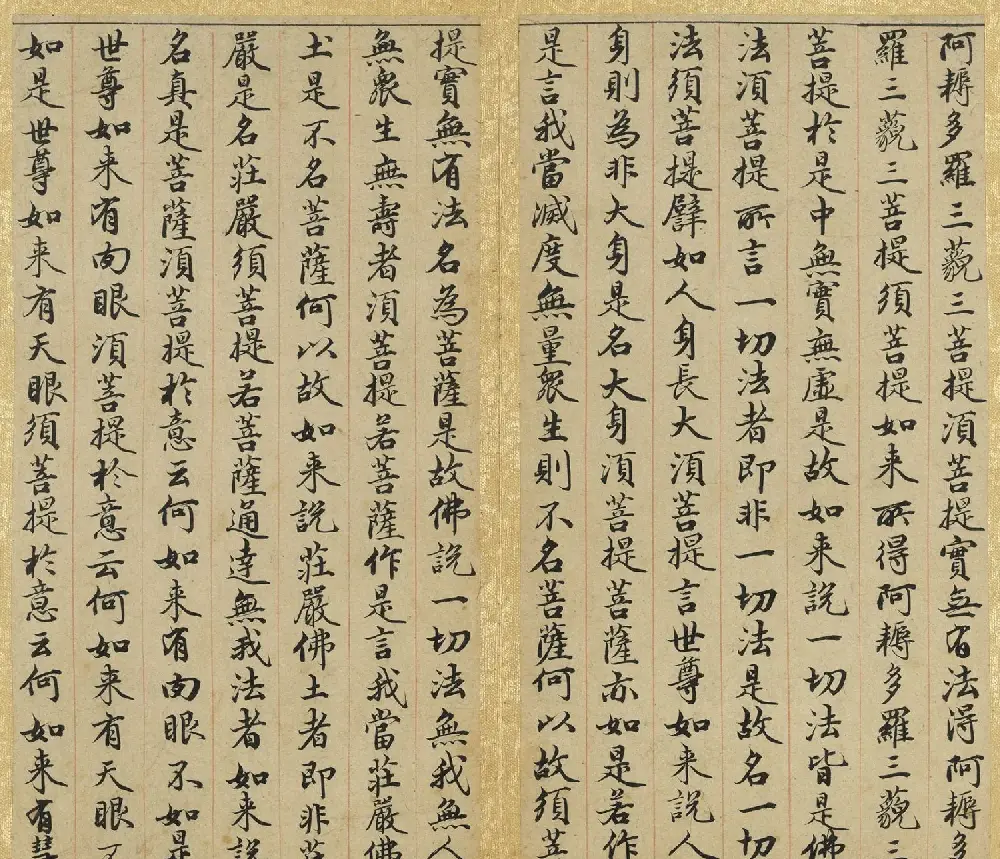 阿耨多羅三藐三菩提須菩提實無有法得阿耨多
羅三藐三菩提須菩提如来所得阿耨多羅三藐三
菩提於是中無實無虛是故如来說一切法皆是佛
法須菩提所言一切法者即非一切法是故名一切
法須菩提譬如人身長大須菩提言世尊如来說人
身則為非大身是名大身須菩提菩薩亦如是若作
是言我當滅度無量眾生則不名菩薩何以故須菩
提實無有法名為菩薩是故佛說一切法無我無人
無眾生無壽者須菩提若菩薩作是言我當莊嚴佛
土是不名菩薩何以故如来說莊嚴佛土者即非莊
嚴是名莊嚴須菩提若菩薩通達無我法者如来說
名真是菩薩須菩提於意云何如来有肉眼不如是
世尊如来有肉眼須菩提於意云何如来有天眼不
如是世尊如来有天眼須菩提於意云何如来有慧